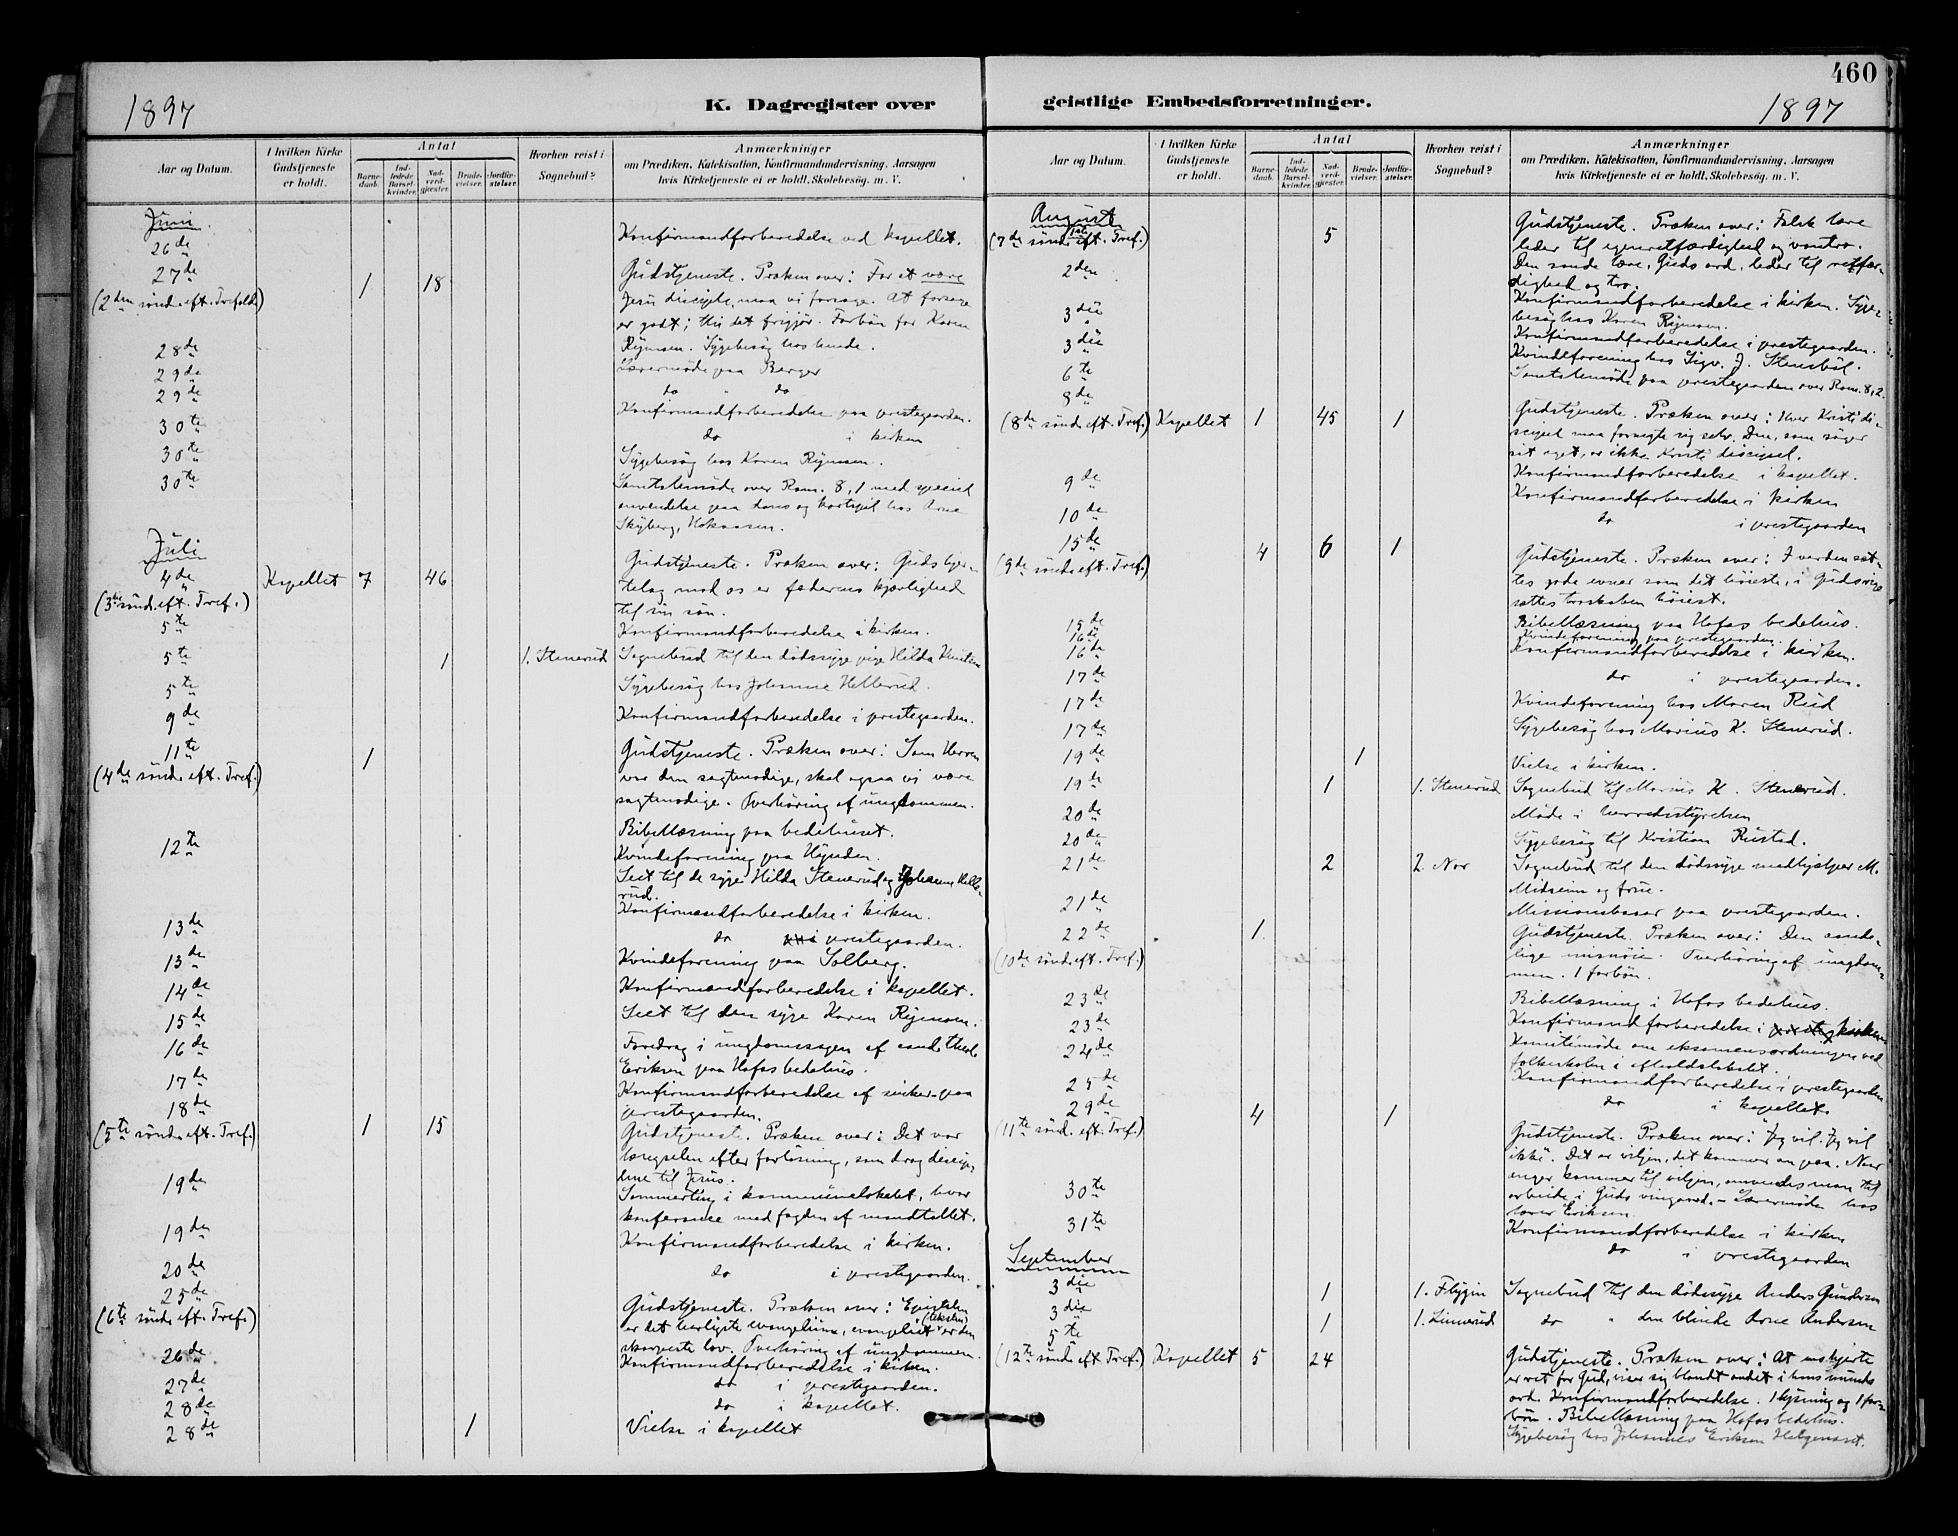 460
1897
K. Dagregister over
geistlige Embedsforretninger.
1897
Aar og Datum.
I hvilken Kirke Gudstjeneste er holdt.
Antal
Barnedaab.
Indledede Barselkvinder.
Nadverdgjester.
Brudevielser.
Jordfæstelser.
Hvorhen reist i Sognebud?
Anmærkninger
om Prædiken, Katekisation, Konfirmandundervisning, Aarsagen
hvis Kirketjeneste ei er holdt, Skolebesøg, m. V.
Juni
26de Konfirmandforberedelse ved kapellet.
27de 1 18 Gudstjeneste. Præken over: For at være
(2den sønd. eft. Trefold.) Jesu disciple, maa vi forsage. At forsage
er godt; thi det frigjør. Forbøn for Karen
28de Rynnsen. Sygebesøg hos hende.
29de Lærermøde paa Berger
29de do do
30te Konfirmandforberedelse paa prestegaarden.
30te do i kirken
30te Sygebesøg hos Karen Rynnsen.
Samtalemøde over Rom. 8,1 med speciel
anvendelse paa dans og kortspil hos Arne
Skyberg, Hokaasen.
Juli
4de Kapellet 7 46 Gudstjeneste. Præken over: Guds
(3die sønd. eft. Tref.) med os er faderens kjærlighed
til sin søn.
5te Konfirmandforberedelse i kirken.
5te 1 1. Stenerud Sognebud til den dødssyge pige Hilda
5te Sygebesøg hos Johanne Hellerud.
9de Konfirmandforberedelse i prestegaarden.
11te 1 Gudstjeneste. Præken over: Som Herren
(4de sønd. eft. Tref.) var den sagtmodige, skal ogsaa vi være
sagtmodige. Overhøring af ungdommen.
Bibellæsning paa bedehuset.
12te Kvindeforening paa Hynden.
Seet til de syge Hilda Stenerud og Johanne Hellerud.
13de Konfirmandforberedelse i kirken.
13de do i prestegaarden.
14de Kvindeforening paa Solberg.
15de Konfirmandforberedelse i kapellet.
16de Seet til den syge Karen Rynnsen.
17de Foredrag i ungdomssagen af cand. theol.
Eriksen paa Hofos bedehus.
18de Konfirmandforberedelse af paa
prestegaarden.
(5te sønd. eft. Tref.) 1 15 Gudstjeneste. Præken over: Det var
længselen efter forløsning, som drog discip-
lene til Jesus.
19de Sommerting i kommunelokalet, hvor
konferanse med fogden af mandtallet.
19de Konfirmandforberedelse i kirken.
20de do i prestegaarden.
25de Gudstjeneste. Præken over: Epistelen
(6te sønd. eft. Tref.) er det herligste evangelium, evangeliet (teksten) er den
skarpeste lov. Overhøring af ungdommen.
26de Konfirmandforberedelse i kirken.
27de do i prestegaarden.
28de do i kapellet.
28de 1 Vielse i kapellet
August
1ste (7de sønd. eft. Tref.) 5 Gudstjeneste. Præken over: Falsk lære
leder til egenretfærdighed og vantro.
Den sande lære, Guds ord, leder til retfær-
dighed og tro.
2den Konfirmandforberedelse i kirken. Syge-
besøg hos Karen Rynnsen.
3die Konfirmandforberedelse i prestegaarden.
3die Kvindeforening hos Sigv. J. Stensbøl.
6te Samtalemøde paa prestegaarden over Rom. 8,2.
8de
(8de sønd. eft. Tref.) Kapellet 1 45 1 Gudstjeneste. Præken over: Hver Kristi di-
scipel maa fornegte sig selv. Den, som søger
sit eget, er ikke Kristi discipel.
9de Konfirmandforberedelse i kapellet.
Konfirmandforberedelse i kirken
10de do i prestegaarden
15de 4 6 1 Gudstjeneste. Præken over: I verden sæt-
(9de sønd. eft. Tref.) tes gode evner som det høieste, i Guds rige
sættes troskaben høiest.
15de Bibellæsning paa Hofos bedehus.
16de Kvindeforening paa prestegaarden.
16de Konfirmandforberedelse i kirken.
17de do i prestegaarden.
17de Kvindeforening hos Maren Rud
17de Sygebesøg hos Marius K. Stenerud.
19de 1 Vielse i kirken.
19de 1 1. Stenerud Sognebud til Marius K. Stenerud.
20de Møde i herredsstyrelsen
20de Sygebesøg til Kristian Rustad.
21de 2 2. Nor Sognebud til den dødssyge medhjælper M.
Midseim og frue.
21de Missionsbasar paa prestegaarden.
22de 1 Gudstjeneste. Præken over: Den aande-
(10de sønd. eft. Tref.) lige misnøie. Overhøring af ungdom-
men. 1 forbøn.
23de Bibellæsning i Hofos bedehus.
23de Konfirmandforberedelse i kirken
24de Komitemøde om eksamensordningen ved
folkeskolen i afholdslokalet.
25de Konfirmandforberedelse i prestegaarden
29de do i kapellet.
(11te sønd. eft. Tref.) 4 1 Gudstjeneste. Præken over: Jeg vil. Jeg vil
ikke. Det er viljen, det kommer an paa. Naar
anger kommer til viljen, anvendes man til
30te arbeide i Guds vingaard. - Lærermøde hos
lærer Eriksen.
31te Konfirmandforberedelse i kirken
do i prestegaarden
September
3die 1 1. Flygin Sognebud til den dødssyge Anders Gundersen
3die 1 1. Linnerud do " den blinde Arne Andersen
5te
(12te sønd. eft. Tref.) Kapellet 5 24 Gudstjeneste. Præken over: At ens hjerte
er ret for Gud, viser sig blandt andet i hans munds
ord. Konfirmandforberedelse. 1 lysning og 1 for-
bøn. Bibellæsning paa Hofos bedehus.
Sygebesøg hos Johannes Eriksen